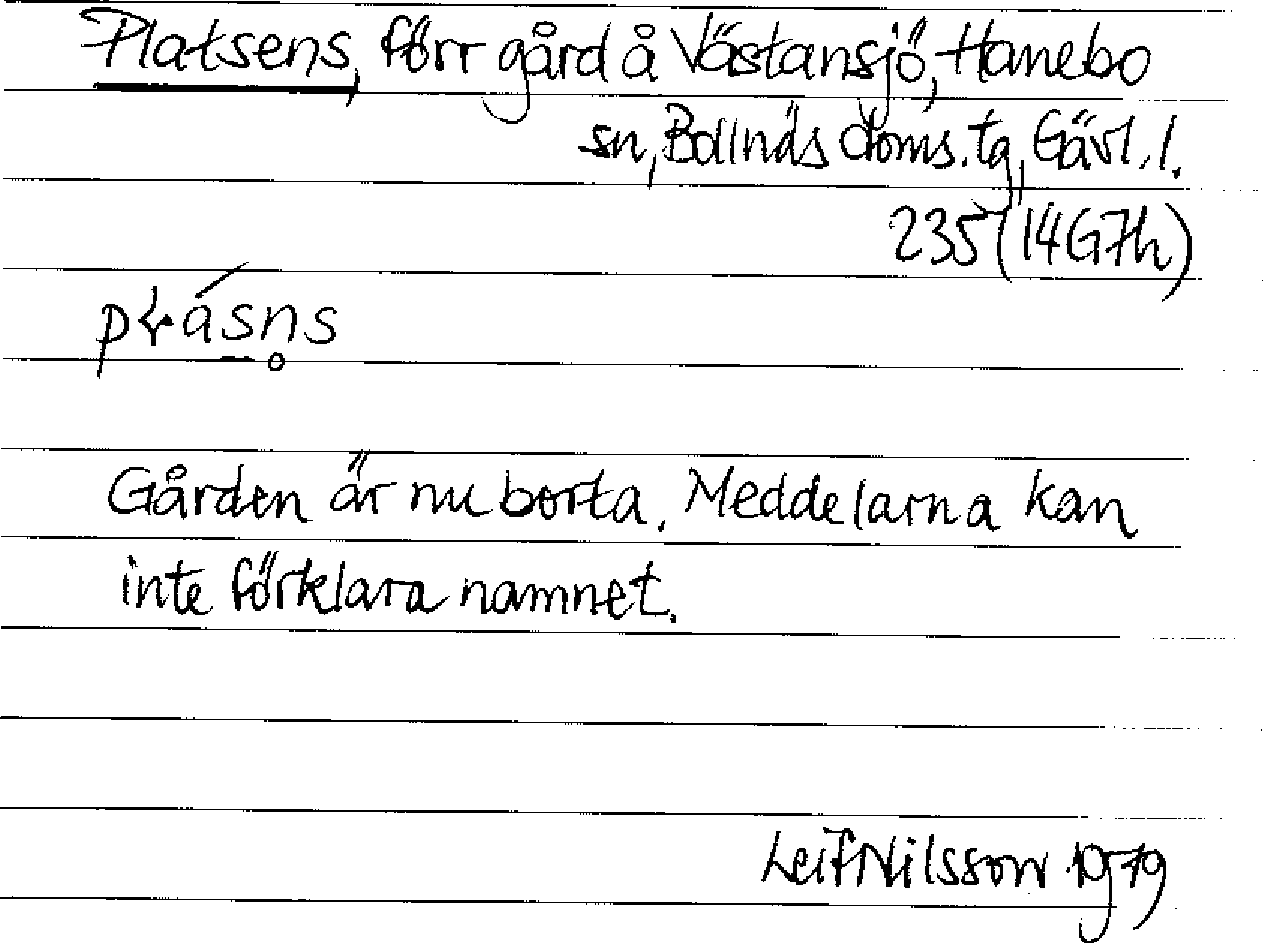 Platsens, förr gård å Västansjö, Hanebo
sn, Bollnäs doms.tg, Gävl.l.
235 (14G7h)
Gården är nu borta. Meddelarna kan
inte förklara namnet.
Leif Nilsson 1979